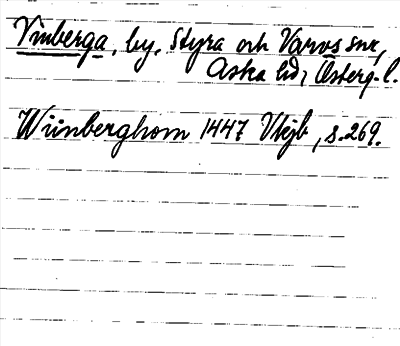 Vinberga, by, Styra och Varvs snr,
Aska hd, Österg. l.
Wiinberghom 1447 Vkjb, s. 269.